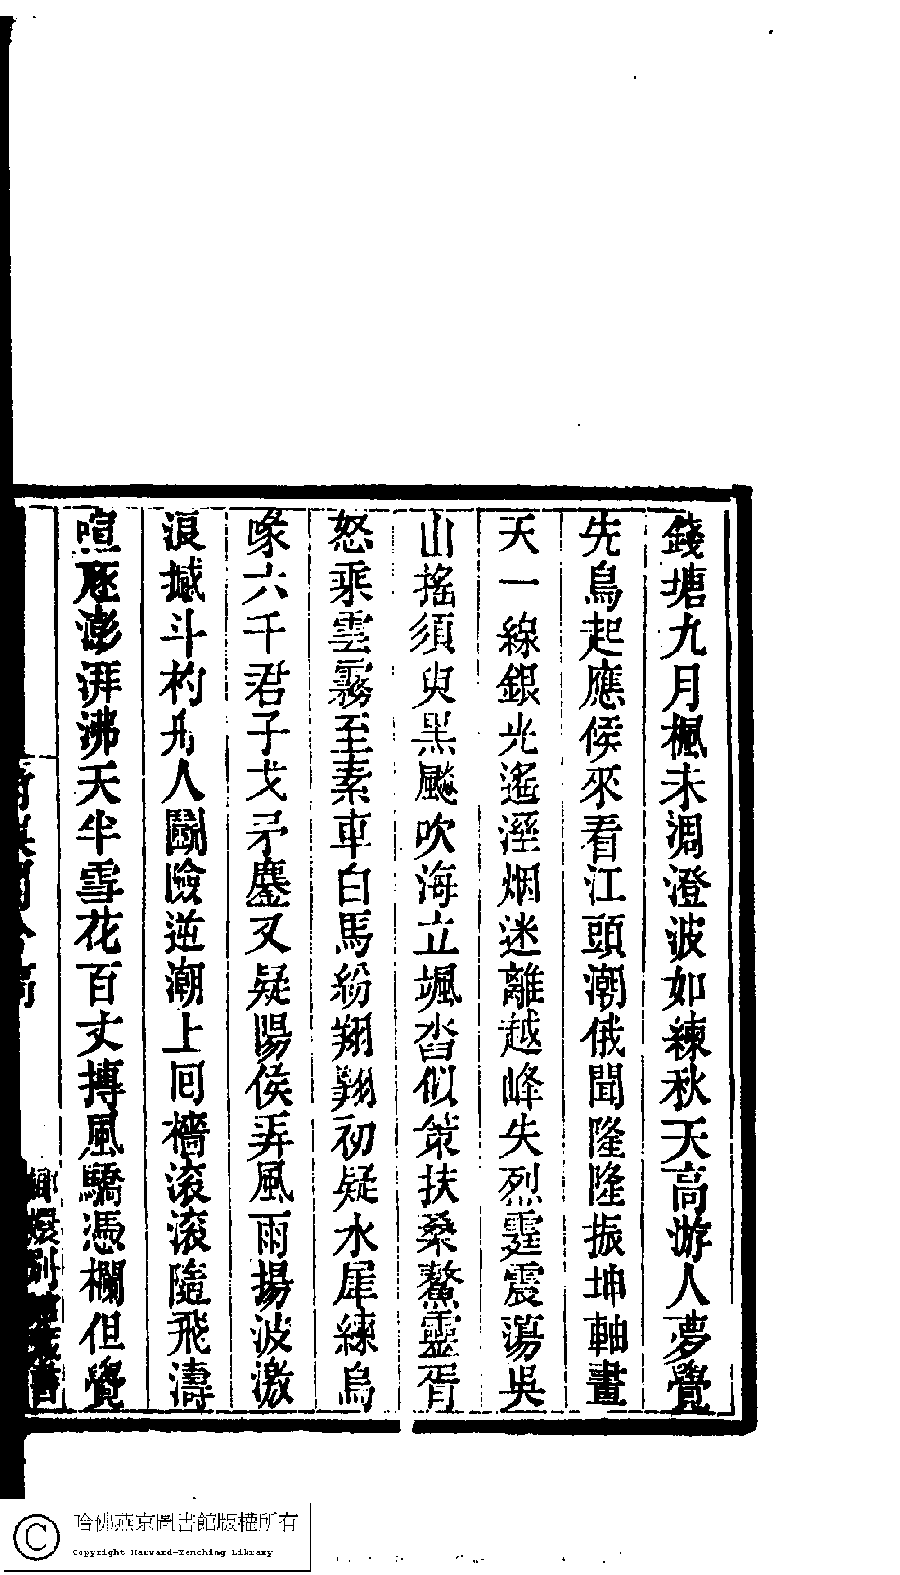 錢塘九月楓未凋澄波如練秋天高游人夢覺
先烏起應候來看江頭潮俄聞隆隆振坤軸畫
天一線銀光遙溼烟迷離越峰失烈霆震蕩吳
山搖須臾黑颷吹海立颯沓似策扶桑鰲靈胥
怒乘雲霧至素車白馬紛翔翔初疑水犀練烏
喙六千君子戈矛鏖又疑陽侯弄風雨揚波激
浪撼斗杓舟人鬭險逆潮上囘檣滚滚隨飛濤
喧豗澎湃沸天半雪花百丈摶風驕憑欄但覺
哈佛燕京圖書館版權所有
Copyright Harvard-Yenching Library